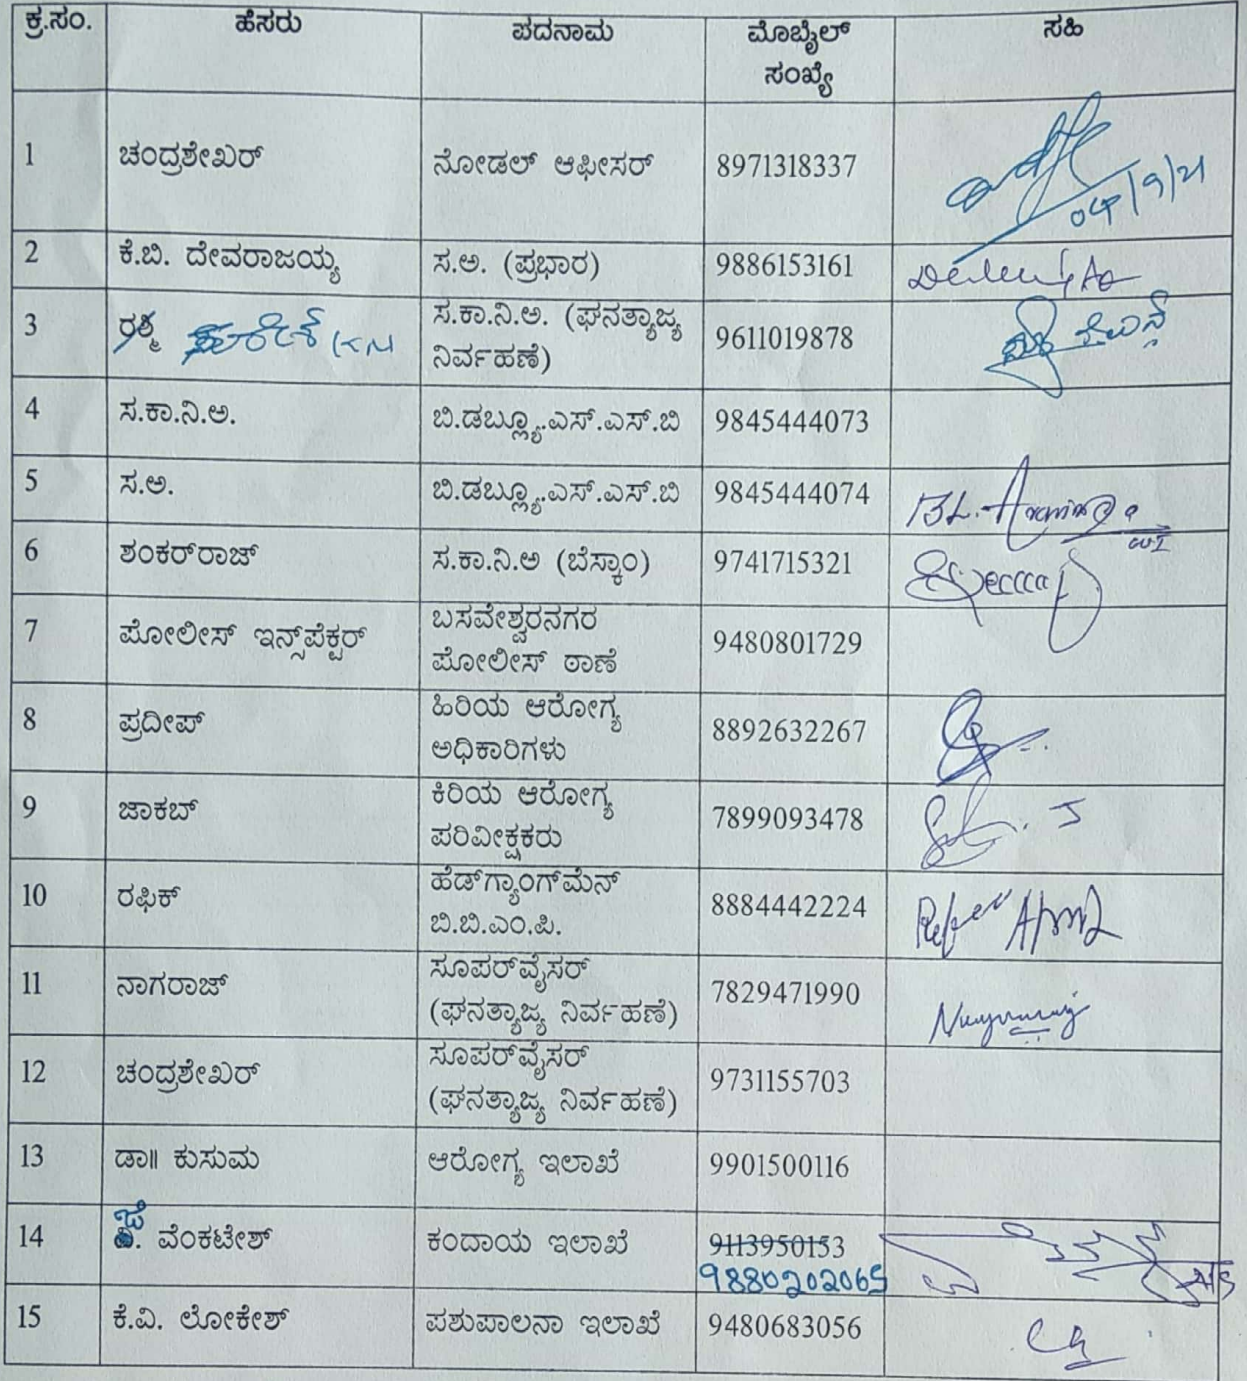 ಕ್ರ.ಸಂ. ಹೆಸರು ಪದನಾಮ ಮೊಬೈಲ್ ಸಂಖ್ಯೆ ಸಹಿ
1 ಚಂದ್ರಶೇಖರ್ ನೋಡಲ್ ಆಫೀಸರ್ 8971318337
04/9/21
2 ಕೆ.ಬಿ. ದೇವರಾಜಯ್ಯ ಸ.ಅ. (ಪ್ರಭಾರ) 9886153161
3 ರಶ್ಮಿ ಸ.ಕಾ.ನಿ.ಅ. (ಘನತ್ಯಾಜ್ಯ ನಿರ್ವಹಣೆ) 9611019878
4 ಸ.ಕಾ.ನಿ.ಅ. ಬಿ.ಡಬ್ಲ್ಯೂ.ಎಸ್.ಎಸ್.ಬಿ 9845444073
5 ಸ.ಅ. ಬಿ.ಡಬ್ಲ್ಯೂ.ಎಸ್.ಎಸ್.ಬಿ 9845444074
6 ಶಂಕರ್‌ರಾಜ್ ಸ.ಕಾ.ನಿ.ಅ (ಬೆಸ್ಕಾಂ) 9741715321
7 ಪೋಲೀಸ್ ಇನ್ಸ್‌ಪೆಕ್ಟರ್ ಬಸವೇಶ್ವರನಗರ ಪೋಲೀಸ್ ಠಾಣೆ 9480801729
8 ಪ್ರದೀಪ್ ಹಿರಿಯ ಆರೋಗ್ಯ ಅಧಿಕಾರಿಗಳು 8892632267
9 ಜಾಕಬ್ ಕಿರಿಯ ಆರೋಗ್ಯ ಪರಿವೀಕ್ಷಕರು 7899093478
10 ರಫಿಕ್ ಹೆಡ್‌ಗ್ಯಾಂಗ್‌ಮೆನ್ ಬಿ.ಬಿ.ಎಂ.ಪಿ. 8884442224
11 ನಾಗರಾಜ್ ಸೂಪರ್‌ವೈಸರ್ (ಘನತ್ಯಾಜ್ಯ ನಿರ್ವಹಣೆ) 7829471990
12 ಚಂದ್ರಶೇಖರ್ ಸೂಪರ್‌ವೈಸರ್ (ಘನತ್ಯಾಜ್ಯ ನಿರ್ವಹಣೆ) 9731155703
13 ಡಾ|| ಕುಸುಮ ಆರೋಗ್ಯ ಇಲಾಖೆ 9901500116
14 ವೆಂಕಟೇಶ್ ಕಂದಾಯ ಇಲಾಖೆ 9113950153
9880202065
15 ಕೆ.ವಿ. ಲೋಕೇಶ್ ಪಶುಪಾಲನಾ ಇಲಾಖೆ 9480683056